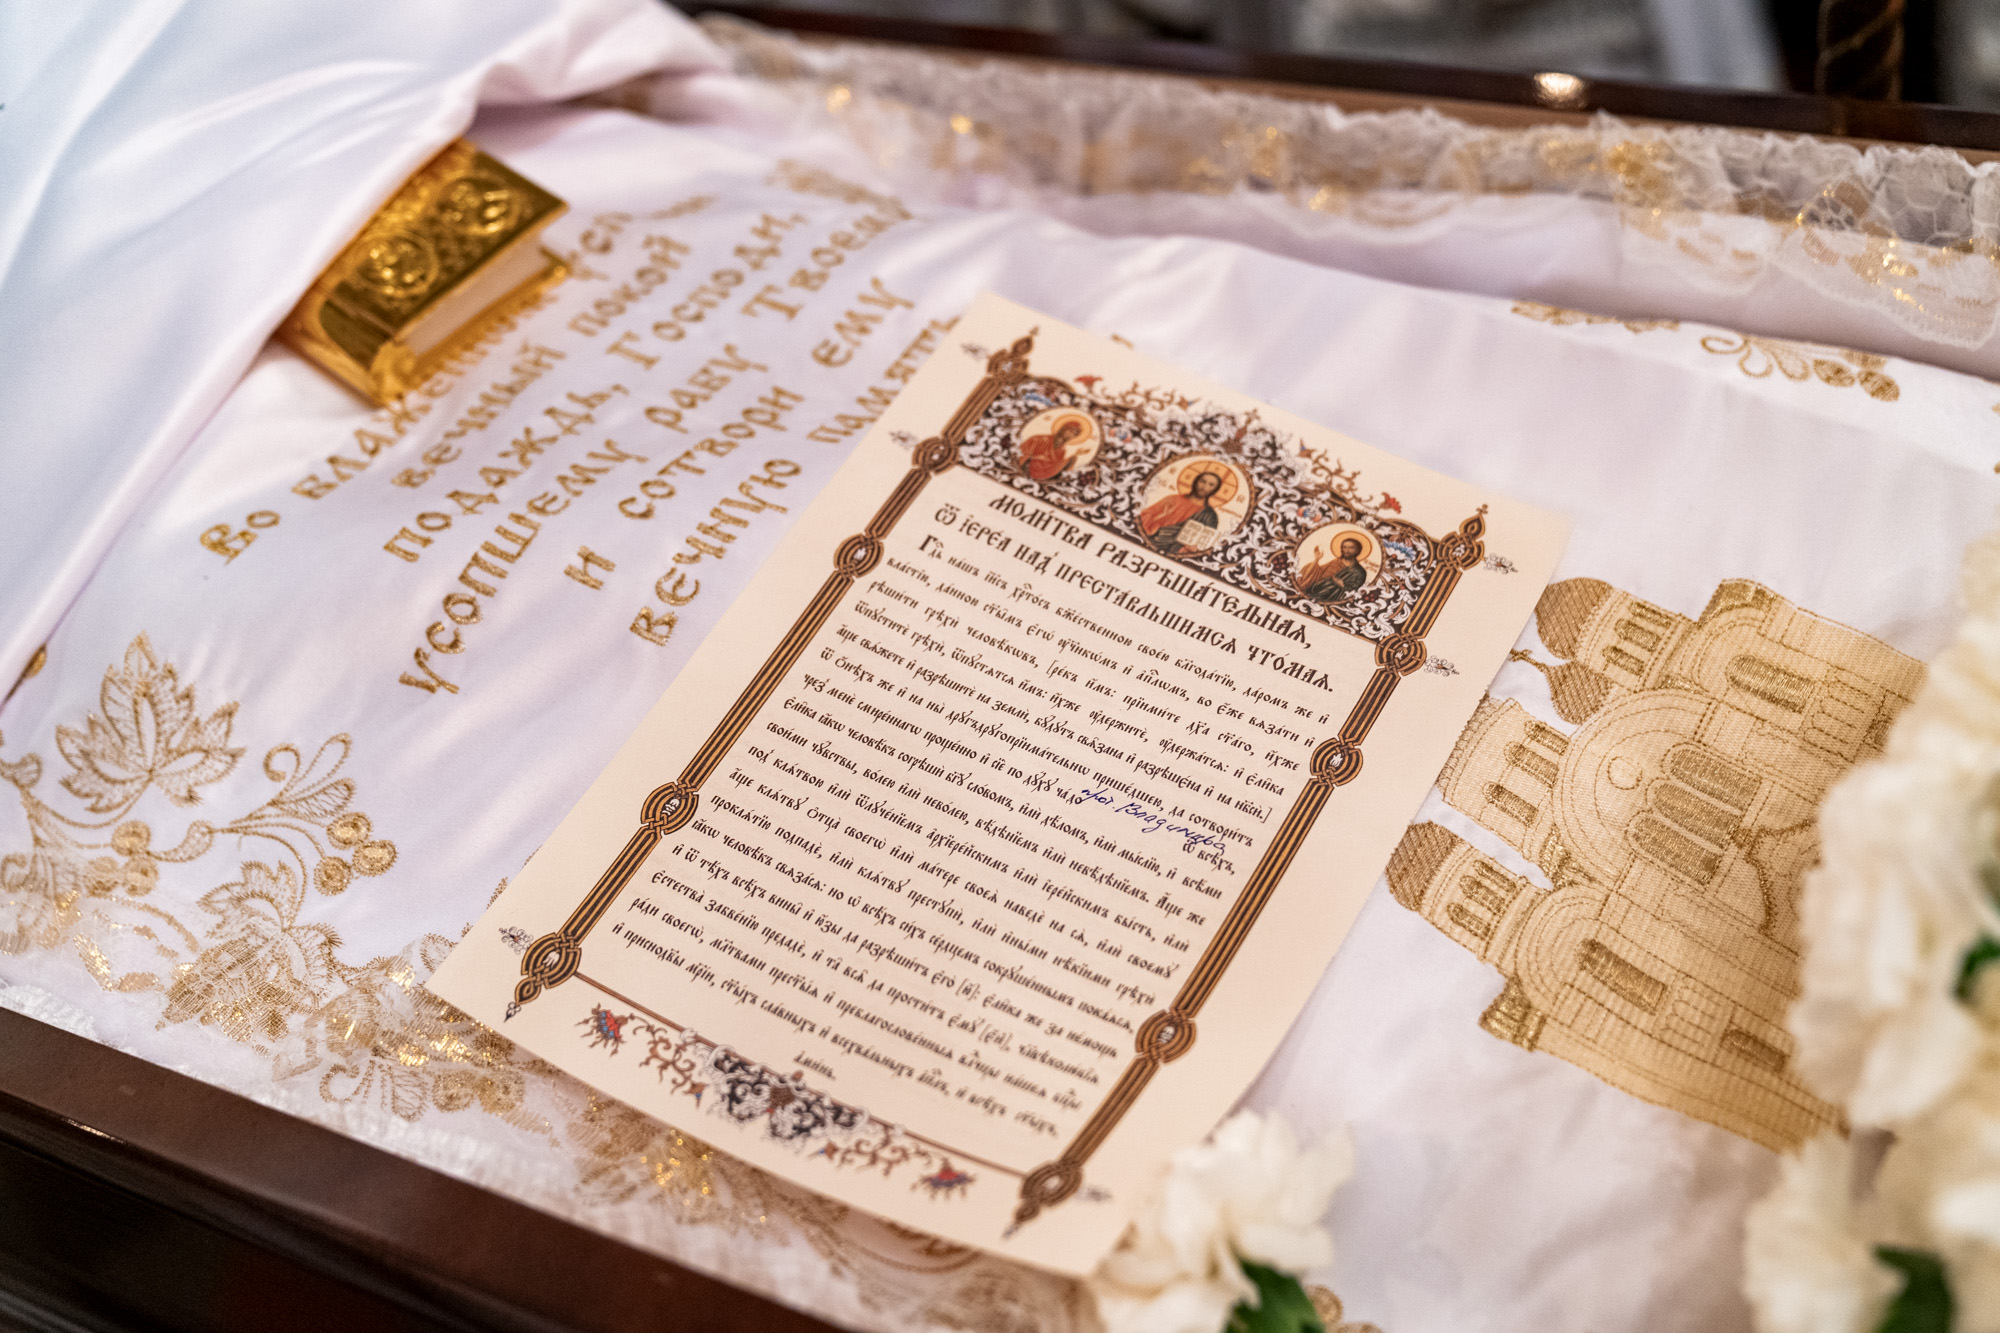 Во блаженном усп
вечный покой
подаждь, Господи,
усопшему рабу Твоему
и сотвори ему
вечную память
МОЛИ́ТВА РАЗРѢША́ТЕЛЬНАѦ,
Ѿ ІЕРЕ́А НАД̾ ПРЕСТА́ВЛЬШИМСѦ ЧТО́МАѦ.
Гдⷭ҇ь нашъ і҆и҃съ хрⷭ҇то́съ бж҃е́ственною свое́ю блгⷣа́тїю, да́ромъ же и҆
вла́стїю, да́нною ст҃ы̑мъ є҆гѡ̀ ᲂу҆чн҃кѡ́мъ и҆ а҆пⷭ҇лѡмъ, во є҆́же вѧза́ти и҆
рѣши́ти грѣхѝ человѣ́кѡвъ, [ре́къ и҆̀мъ: прїими́те дх҃а ст҃а́го, и҆̀хже
ѿпꙋститѐ грѣхѝ, ѿпꙋ́стѧтсѧ и҆̀мъ: и҆̀хже ᲂу҆держитѐ, ᲂу҆держа́тсѧ: и҆ є҆ли̑ка
а҆́ще свѧ́жете и҆ разрѣшитѐ на землѝ, бꙋ́дꙋтъ свѧ̑зана и҆ разрѣшє́на и҆ на нб҃сѝ.]
ѿ ѻ҆нѣ́хъ же и҆ на ны̀ дрꙋ́гъдрꙋгопрїима́тельнѡ прише́дшею, да сотвори́тъ
чрез̾ менѐ смире́ннаго проще́нно и҆ сїѐ по дꙋ́хꙋ ча́до прот. Владимира ѿ всѣ́хъ,
є҆ли̑ка ꙗ҆́кѡ человѣ́къ согрѣшѝ бг҃ꙋ сло́вомъ, и҆лѝ дѣ́ломъ, и҆лѝ мы́слїю, и҆ всѣ́ми
свои́ми чꙋ̑вствы, во́лею и҆лѝ нево́лею, вѣ́дѣнїемъ и҆лѝ невѣ́дѣнїемъ. А҆́ще же
под̾ клѧ́твою и҆лѝ ѿлꙋче́нїемъ а҆рхїере́йскимъ и҆лѝ і҆ере́йскимъ бы́сть, и҆лѝ
а҆́ще клѧ́твꙋ ѻ҆тца̀ своегѡ̀ и҆лѝ ма́тере своеѧ̀ наведѐ на сѧ̀, и҆лѝ своемꙋ̀
проклѧ́тїю подпадѐ, и҆лѝ клѧ́твꙋ престꙋпѝ, и҆лѝ и҆ны́ми нѣ́кїими грѣхѝ
ꙗ҆́кѡ человѣ́къ свѧза́сѧ: но ѡ҆ всѣ́хъ си́хъ се́рдцемъ сокрꙋше́ннымъ пока́ѧсѧ,
и҆ ѿ тѣ́хъ всѣ́хъ вины̀ и҆ ю҆́зы да разрѣши́тъ є҆го̀ [ю҆̀]: є҆ли̑ка же за не́мощь
є҆стества̀ забве́нїю предадѐ, и҆ та̑ всѧ̑ да прости́тъ є҆мꙋ̀ [є҆́й], чл҃вѣколю́бїѧ
ра́ди своегѡ̀, мл҃твами прест҃ы́ѧ и҆ преблагослове́нныѧ влⷣчцы на́шеѧ бцⷣы
и҆ приснодв҃ы мр҃і́и, ст҃ы́хъ сла́вныхъ и҆ всехва́льныхъ а҆пⷭ҇лъ, и҆ всѣ́хъ ст҃ы́хъ.
А҆ми́нь.